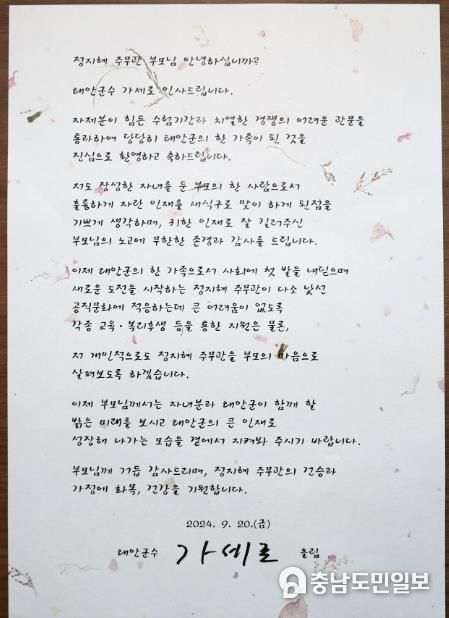 정지혜 주무관 부모님 안녕하십니까?
태안군수 가세로 인사드립니다.
자제분이 힘든 수험기간과 치열한 경쟁의 어려운 관문을
통과하여 당당히 태안군의 한 가족이 된 것을
진심으로 환영하고 축하드립니다.
저도 장성한 자녀를 둔 부모의 한 사람으로서
훌륭하게 자란 인재를 새식구로 맞이 하게 된점을
기쁘게 생각하며, 귀한 인재로 잘 길러주신
부모님의 노고에 무한한 존경과 감사를 드립니다.
이제 태안군의 한 가족으로서 사회에 첫 발을 내딛으며
새로운 도전을 시작하는 정지혜 주무관이 다소 낯선
공직문화에 적응하는데 큰 어려움이 없도록
각종 교육·복리후생 등을 통한 지원은 물론,
저 개인적으로도 정지혜 주무관을 부모의 마음으로
살펴보도록 하겠습니다.
이제 부모님께서는 자녀분과 태안군이 함께 할
밝은 미래를 보시고 태안군의 큰 인재로
성장해 나가는 모습을 곁에서 지켜봐 주시기 바랍니다.
부모님께 거듭 감사드리며, 정지혜 주무관의 건승과
가정에 화목, 건강을 기원합니다.
2024. 9. 20.(금)
태안군수 가세로 올림
충남도민일보